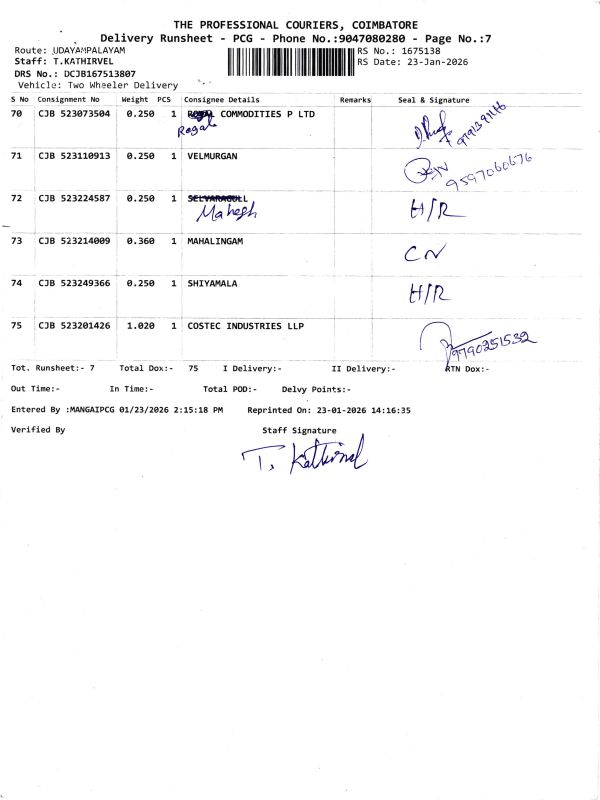 THE PROFESSIONAL COURIERS, COIMBATORE
Delivery Runsheet - PCG - Phone No.:9047080280 - Page No.:7
Route: UDAYAMPALAYAM RS No.: 1675138
Staff: T.KATHIRVEL RS Date: 23-Jan-2026
DRS No.: DCJB167513807
Vehicle: Two Wheeler Delivery
S No Consignment No Weight PCS Consignee Details Remarks Seal & Signature
70 CJB 523073504 0.250 1 COMMODITIES P LTD
Regal
71 CJB 523110913 0.250 1 VELMURGAN 9597060676
72 CJB 523224587 0.250 1 H/R
Mahesh
73 CJB 523214009 0.360 1 MAHALINGAM CN
74 CJB 523249366 0.250 1 SHIYAMALA H/R
75 CJB 523201426 1.020 1 COSTEC INDUSTRIES LLP 9790251532
Tot. Runsheet:- 7 Total Dox:- 75 I Delivery:- II Delivery:- RTN Dox:-
Out Time:- In Time:- Total POD:- Delvy Points:-
Entered By :MANGAIPCG 01/23/2026 2:15:18 PM Reprinted On: 23-01-2026 14:16:35
Verified By Staff Signature